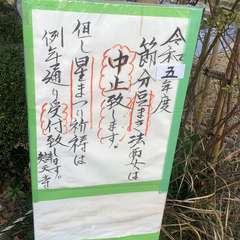 令和五年度
節分豆まき法要は
中止致します。
但し星まつり祈祷は
例年通り受付致します。